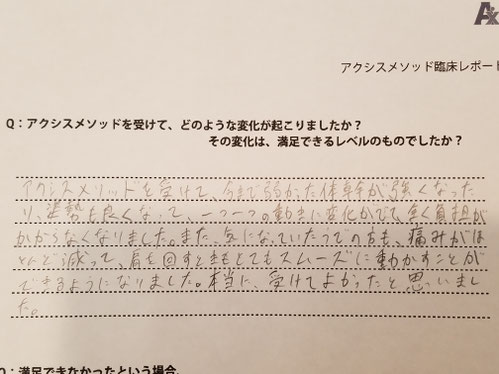 Ax
アクシスメソッド臨床レポート
Q：アクシスメソッドを受けて、どのような変化が起こりましたか？
その変化は、満足できるレベルのものでしたか？
アクシスメソッドを受けて、今まで弱かった体幹が強くなった
り、姿勢も良くなって、一つ一つの動きに変化がでて、全く負担が
かからなくなりました。また、気になっていたうでの方も、痛みがほ
とんど減って、肩を回すときもとてもスムーズに動かすことが
できるようになりました。本当に、受けてよかったと思いまし
た。
Q：満足できなかったという場合、